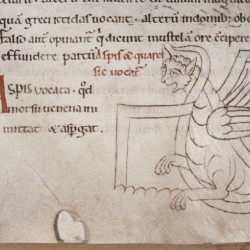 quā greci ictidas uocant. alterū indomib; ober
falso autē opinant̄ q̄ dicunt mustelā ore ↄcipere
effundere partū Aspis ēē quare
sic uocat̄
Aspis uocata. qd̄
morsu uenena im
mittat & aspgat.